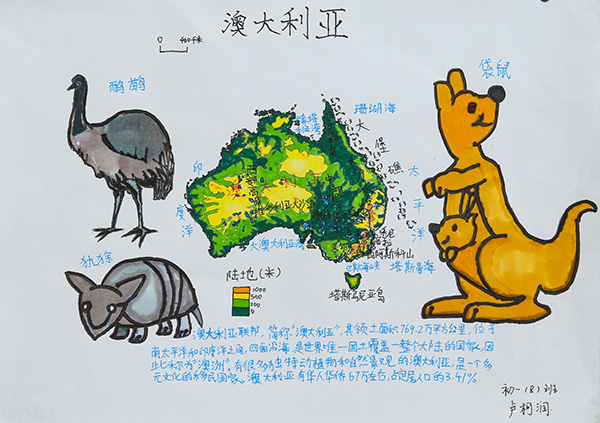 澳大利亚
0 460千米
鸸鹋
袋鼠
珊瑚海
大
堡
礁
印
度
洋
太
平
洋
大澳大利亚湾
塔斯曼海
塔斯马尼亚岛
犰狳
陆地(米)
1000
500
200
0
澳大利亚联邦，简称"澳大利亚"，其领土面积769.2万平方公里，位于
南太平洋和印度洋之间，四面沿海，是世界唯一国土覆盖一整个大陆的国家，因
此也称为"澳洲"。有很多独特动植物和自然景观的澳大利亚，是一个多
元文化的移民国家。澳大利亚有华人华侨67万左右，占总居人口的3.41%
初一(8)班
卢柯润